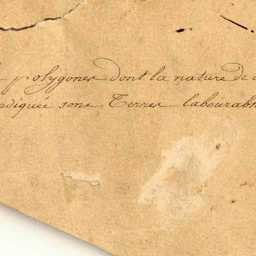 polygones dont la nature de
indiquée sont Terres labourab